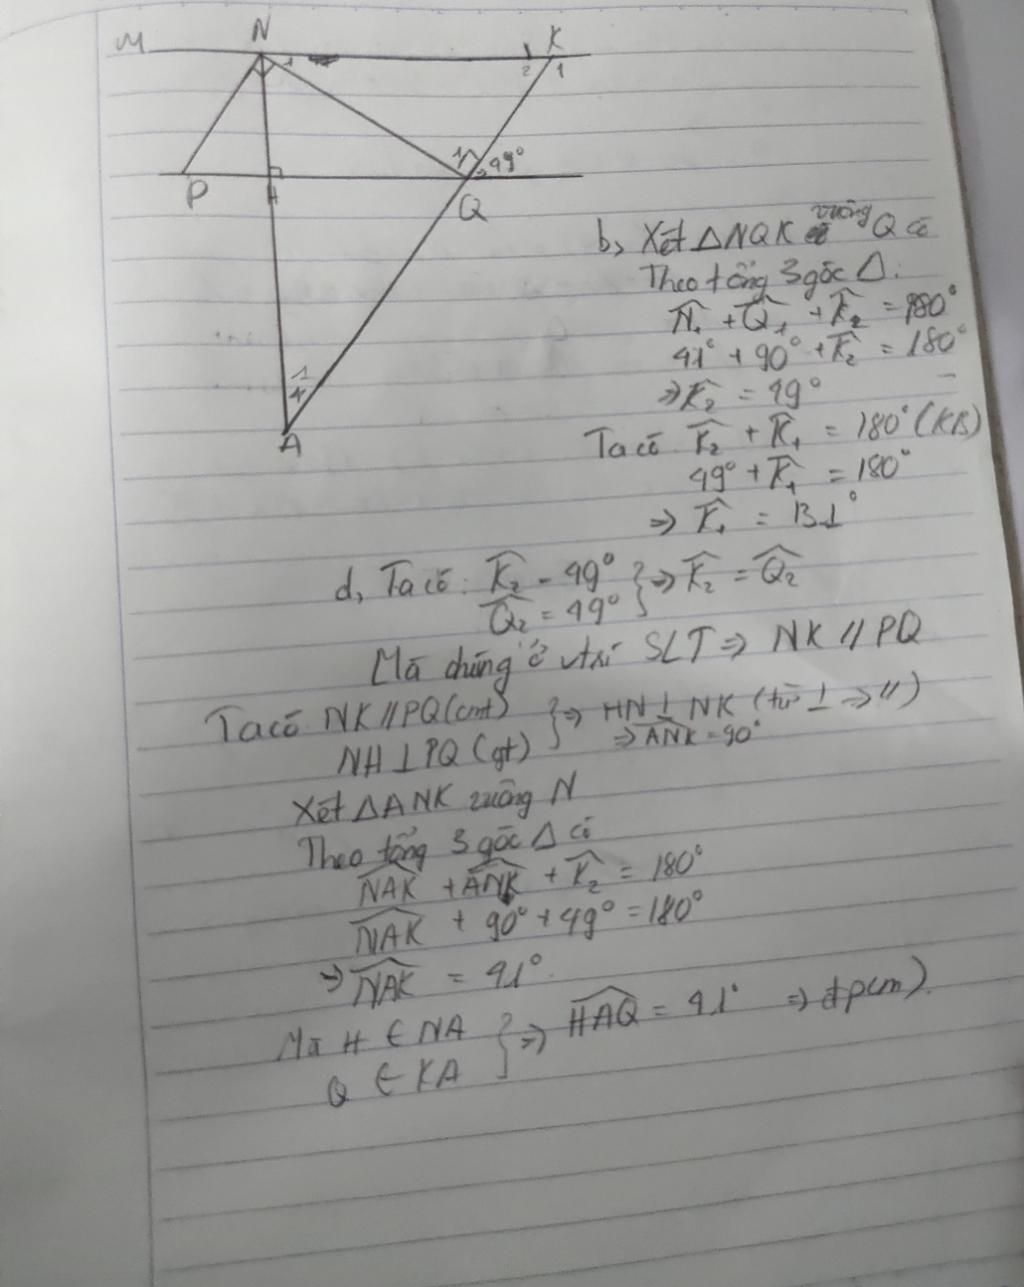 M N K
1 2 1
1 49°
P H Q
1
A
b, Xét △NQK vuông Q có
Theo tổng 3 góc △:
N̂₁ + Q̂₁ + K̂₂ = 180°
41° + 90° + K̂₂ = 180°
⇒ K̂₂ = 49°
Ta có K̂₂ + K̂₁ = 180° (KB)
49° + K̂₁ = 180°
⇒ K̂₁ = 131°
d, Ta có: K̂₂ = 49° } ⇒ K̂₂ = Q̂₂
Q̂₂ = 49°
Mà chúng ở vtrí SLT ⇒ NK // PQ
Ta có NK // PQ (cmt) } ⇒ HN ⊥ NK (từ ⊥ ⇒ //)
NH ⊥ PQ (gt) ⇒ ANK = 90°
Xét △ANK vuông N
Theo tổng 3 góc △ có
NAK + ANK + K̂₂ = 180°
NAK + 90° + 49° = 180°
⇒ NAK = 41°
Mà H ∈ NA } ⇒ HAQ = 41° ⇒ đpcm)
Q ∈ KA